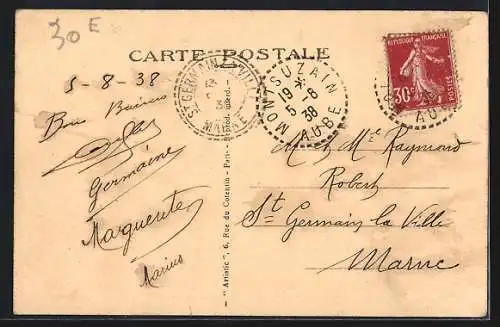 30 E
CARTE POSTALE
5-8-38
Bons Baisers
Germaine
Marguerite
Marius
ST GERMAIN-LA-VILLE
MARNE
MONTSUZAIN
19 *
5 -8
38
AUBE
REPUBLIQUE FRANÇAISE
30c
POSTES
AUBE
M. et Me Raymond
Robert
St Germain la Ville
Marne
"Artistic", 6, Rue du Cotentin - Paris -